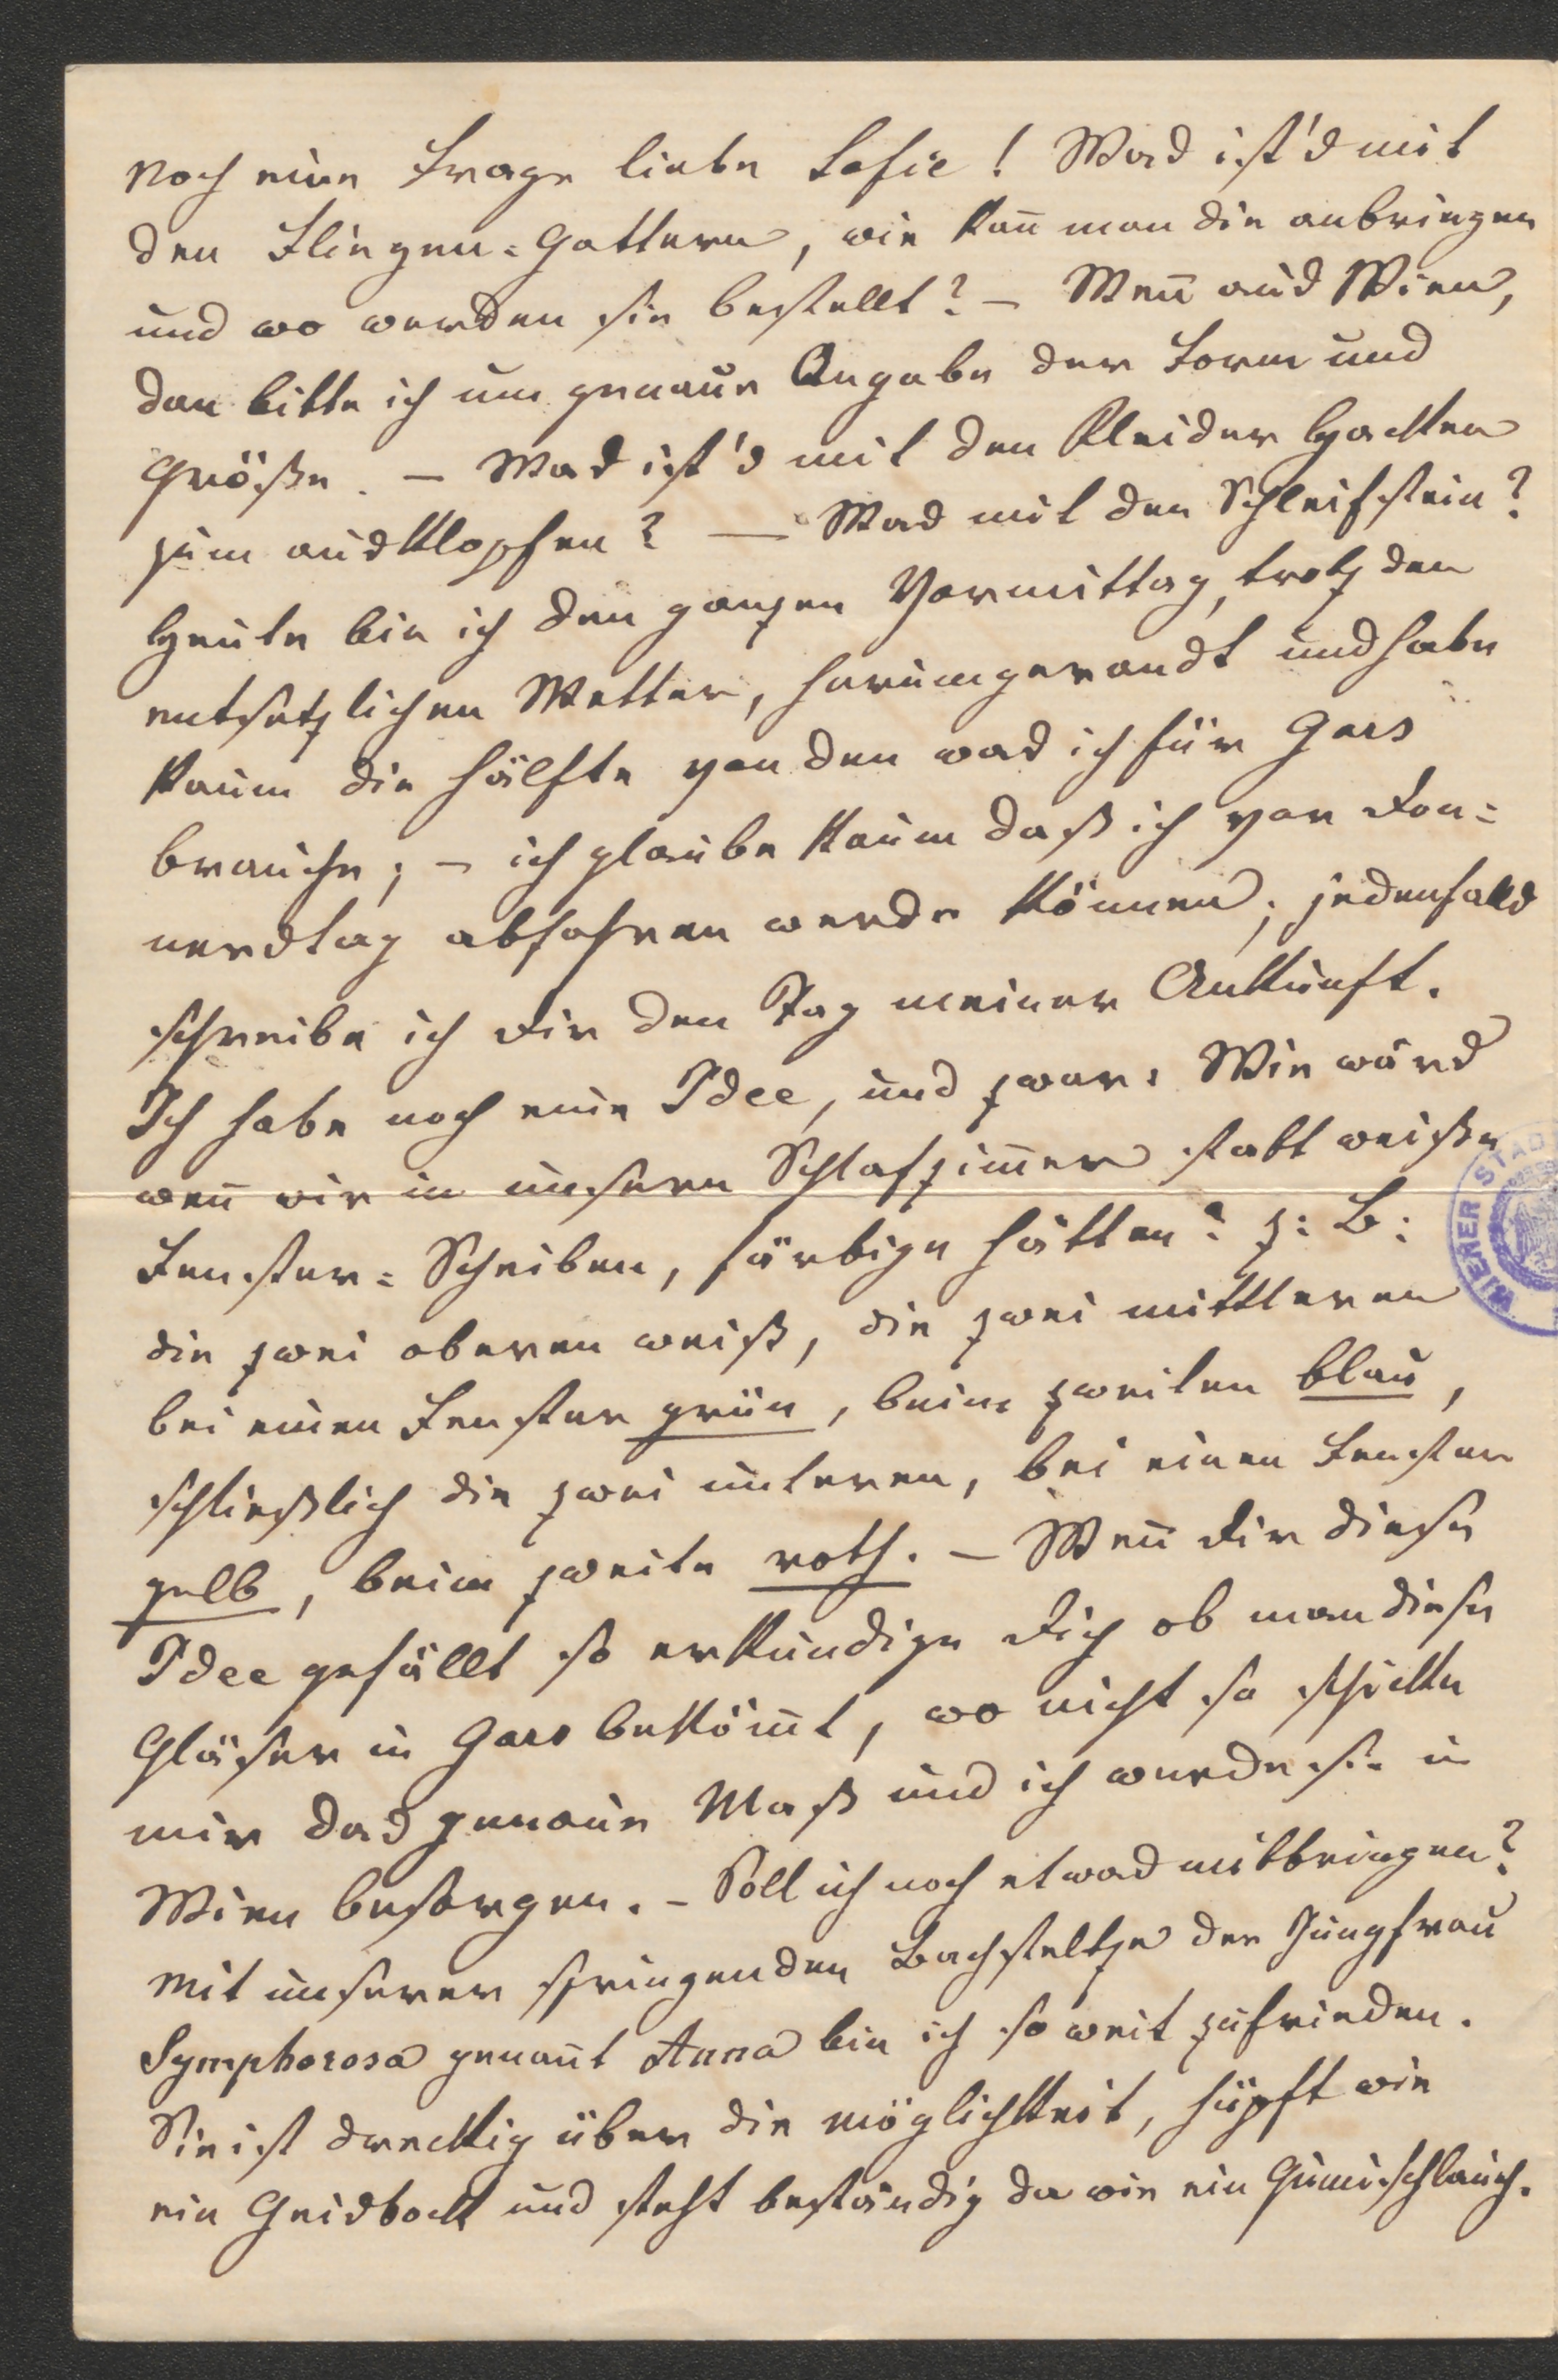 Noch eine Frage liebe Sofie! Was ist's mit
den Fliegen=Gattern, wie kan̄ man die anbringen
und wo werden sie bestellt? – Wen̄ aus Wien,
dan bitte ich um genaue Angabe der Form und
Größe. – Was ist's mit den Kleider Hacken
zum ausklopfen? – Was mit den Schleifstein?
Heute bin ich den ganzen Vormittag, trotz den
entsetzlichen Wetter, herumgerandt und habe
kaum die hälfte von den was ich für Gars
brauche; – ich glaube kaum daß ich vor Don=
nerstag abfahren werde können; jedenfalls
schreibe ich dir den Tag meiner Ankunft.
Ich habe noch eine Idee, und zwar: Wie wärs
wen̄ wir in unsern Schlafzim̄er statt weiße
Fenster=Scheiben, färbige hätten? z: B:
die zwei oberen weiß, die zwei mittleren
bei einen Fenster grün, beim zweiten blau,
schließlich die zwei unteren, bei einen Fenster
gelb, beim zweite roth. – Wen̄ dir diese
Idee gefällt so erkundige dich ob man diese
Gläser in Gars bekōm̄t, wo nicht so schicke
mir das genaue Maß und ich werde sie in
Wien besorgen. – Soll ich noch etwas mitbringen?
Mit unserer springenden Bachsteltze der Jungfrau
Symphorosa genan̄t Anna bin ich so weit zufrieden.
Sie ist dreckig über die möglichkeit, hüpft wie
ein Geisbock und steht beständig da wie ein Gum̄ischlauch.
WIENER STAD